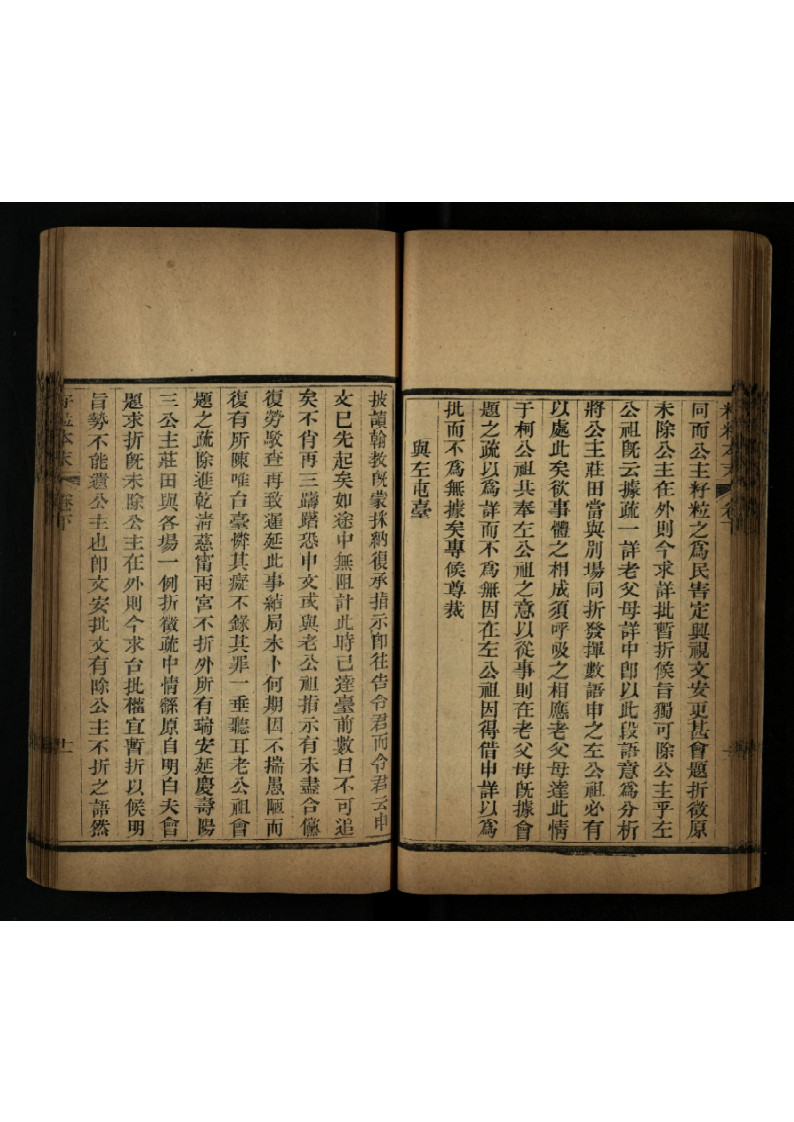 同而公主籽粒之爲民害定興視文安更甚會題折徵原
未除公主在外則今求詳批暫折候旨獨可除公主乎左
公祖旣云據疏一詳老父母詳中卽以此段語意爲分析
將公主莊田當與別場同折發揮數語申之左公祖必有
以處此矣欲事體之相成須呼吸之相應老父母達此情
于柯公祖共奉左公祖之意以從事則在老父母旣據會
題之疏以爲詳而不爲無因在左公祖因得借申詳以爲
批而不爲無據矣專候尊裁
與左屯臺
披讀翰敎旣蒙採納復承指示卽往告令君而令君云申
文已先起矣如途中無阻計此時已達臺前數日不可追
矣不肖再三躊躇恐申文或與老公祖指示有未盡合儻
復勞駁查再致遲延此事結局未卜何期因不揣愚陋而
復有所陳唯台臺憐其癡不錄其罪一垂聽耳老公祖會
題之疏除進乾淸慈甯兩宮不折外所有瑞安延慶壽陽
三公主莊田與各場一例折徵疏中情繇原自明白夫會
題求折旣未除公主在外則今求台批權宜暫折以候明
旨勢不能遺公主也卽文安批文有除公主不折之語然
籽粒本末 卷下 十一